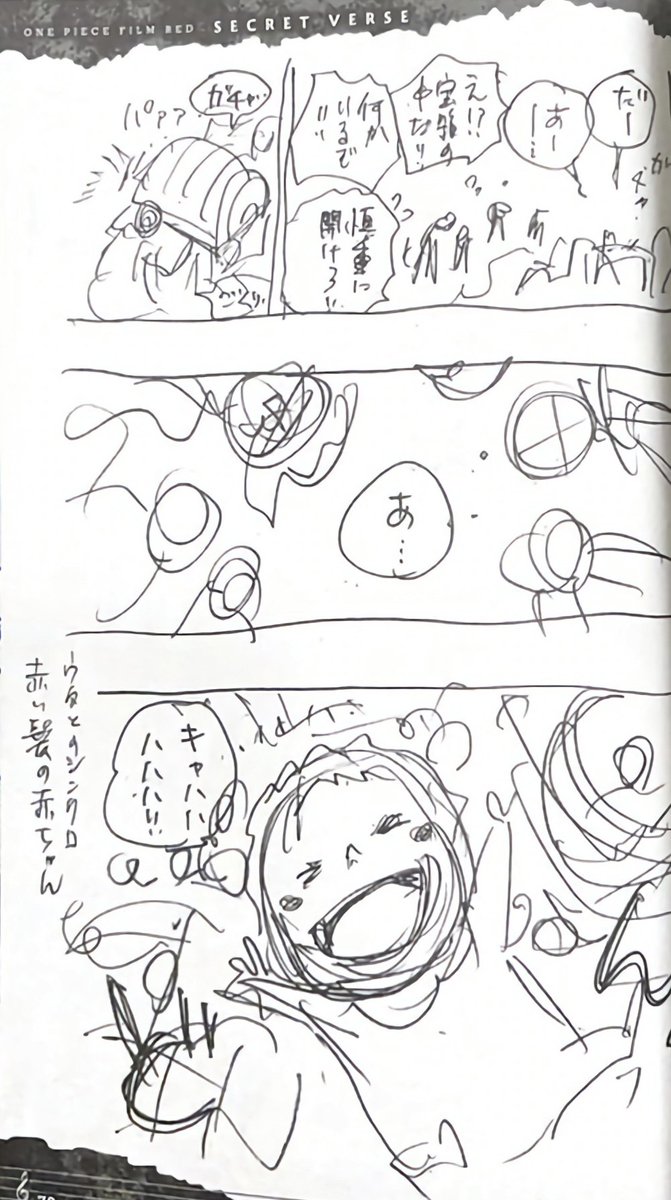 ONE PIECE FILM RED SECRET VERSE
だー
あー
ー…
え!?
宝箱の
中だ!!
何か
いるぞ
!!
慎重に
開けろ!!
ガチャ…
パァァ
あ…
キャハハ
ハハハハ!!
ウタとのシンクロ
赤い髪の赤ちゃん